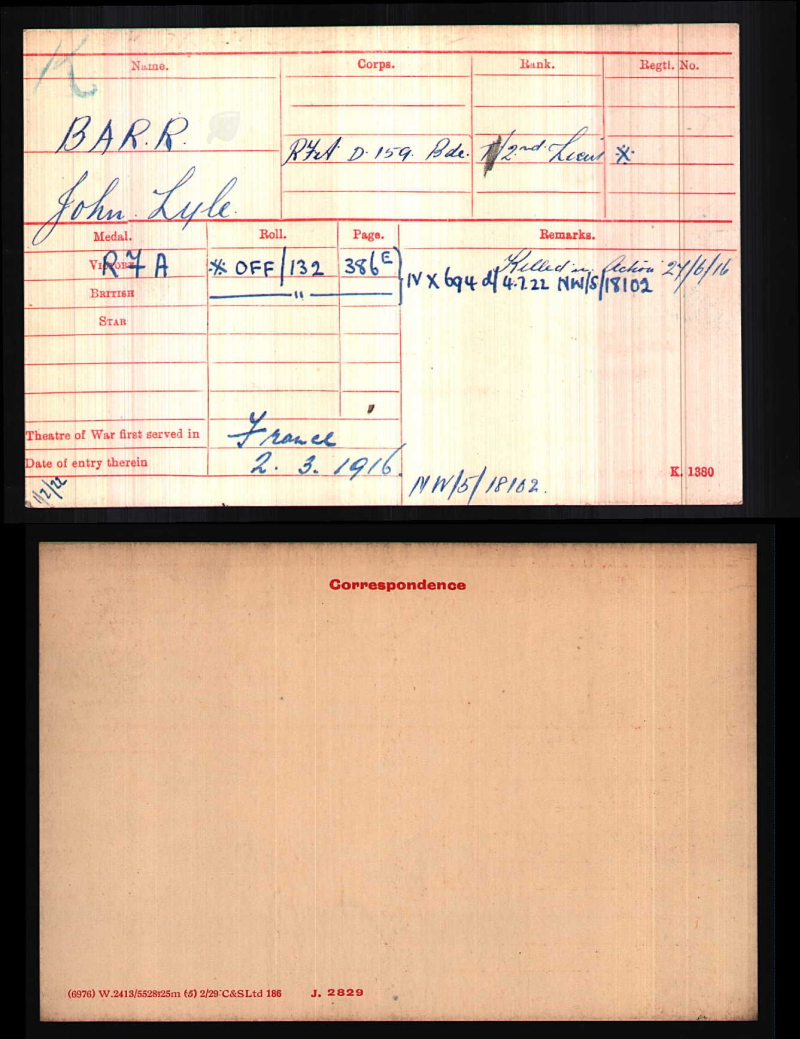 K
Name. Corps. Rank. Regtl. No.
BARR. RFA D. 159. Bde. T/2nd Lieut *
John. Lyle.
Medal. Roll. Page. Remarks.
Killed in Action 27/6/16
VICTORY RFA * OFF/132 386E IV X 694 d/ 4.7.22 NW/5/18102
BRITISH "
STAR
Theatre of War first served in France
Date of entry therein 2. 3. 1916.
K. 1380
NW/5/18102.
Correspondence
(6976) W.2413/5528125m (5) 2/29 C&SLtd 186 J. 2829